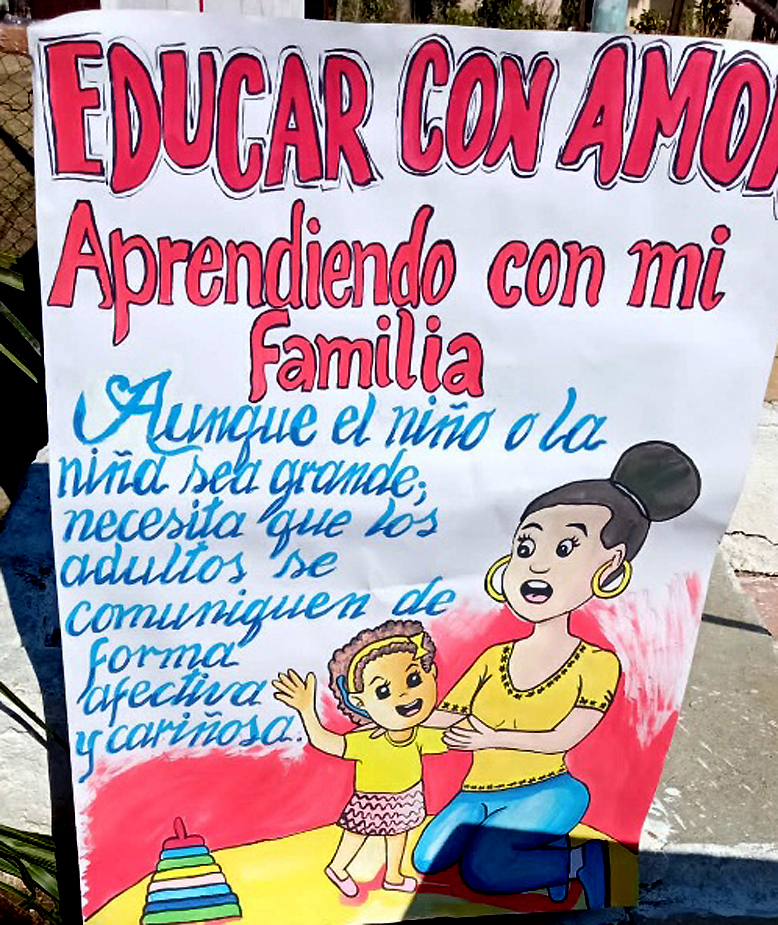 EDUCAR CON AMOR
Aprendiendo con mi
familia
Aunque el niño o la
niña sea grande,
necesita que los
adultos se
comuniquen de
forma
afectiva
y cariñosa.